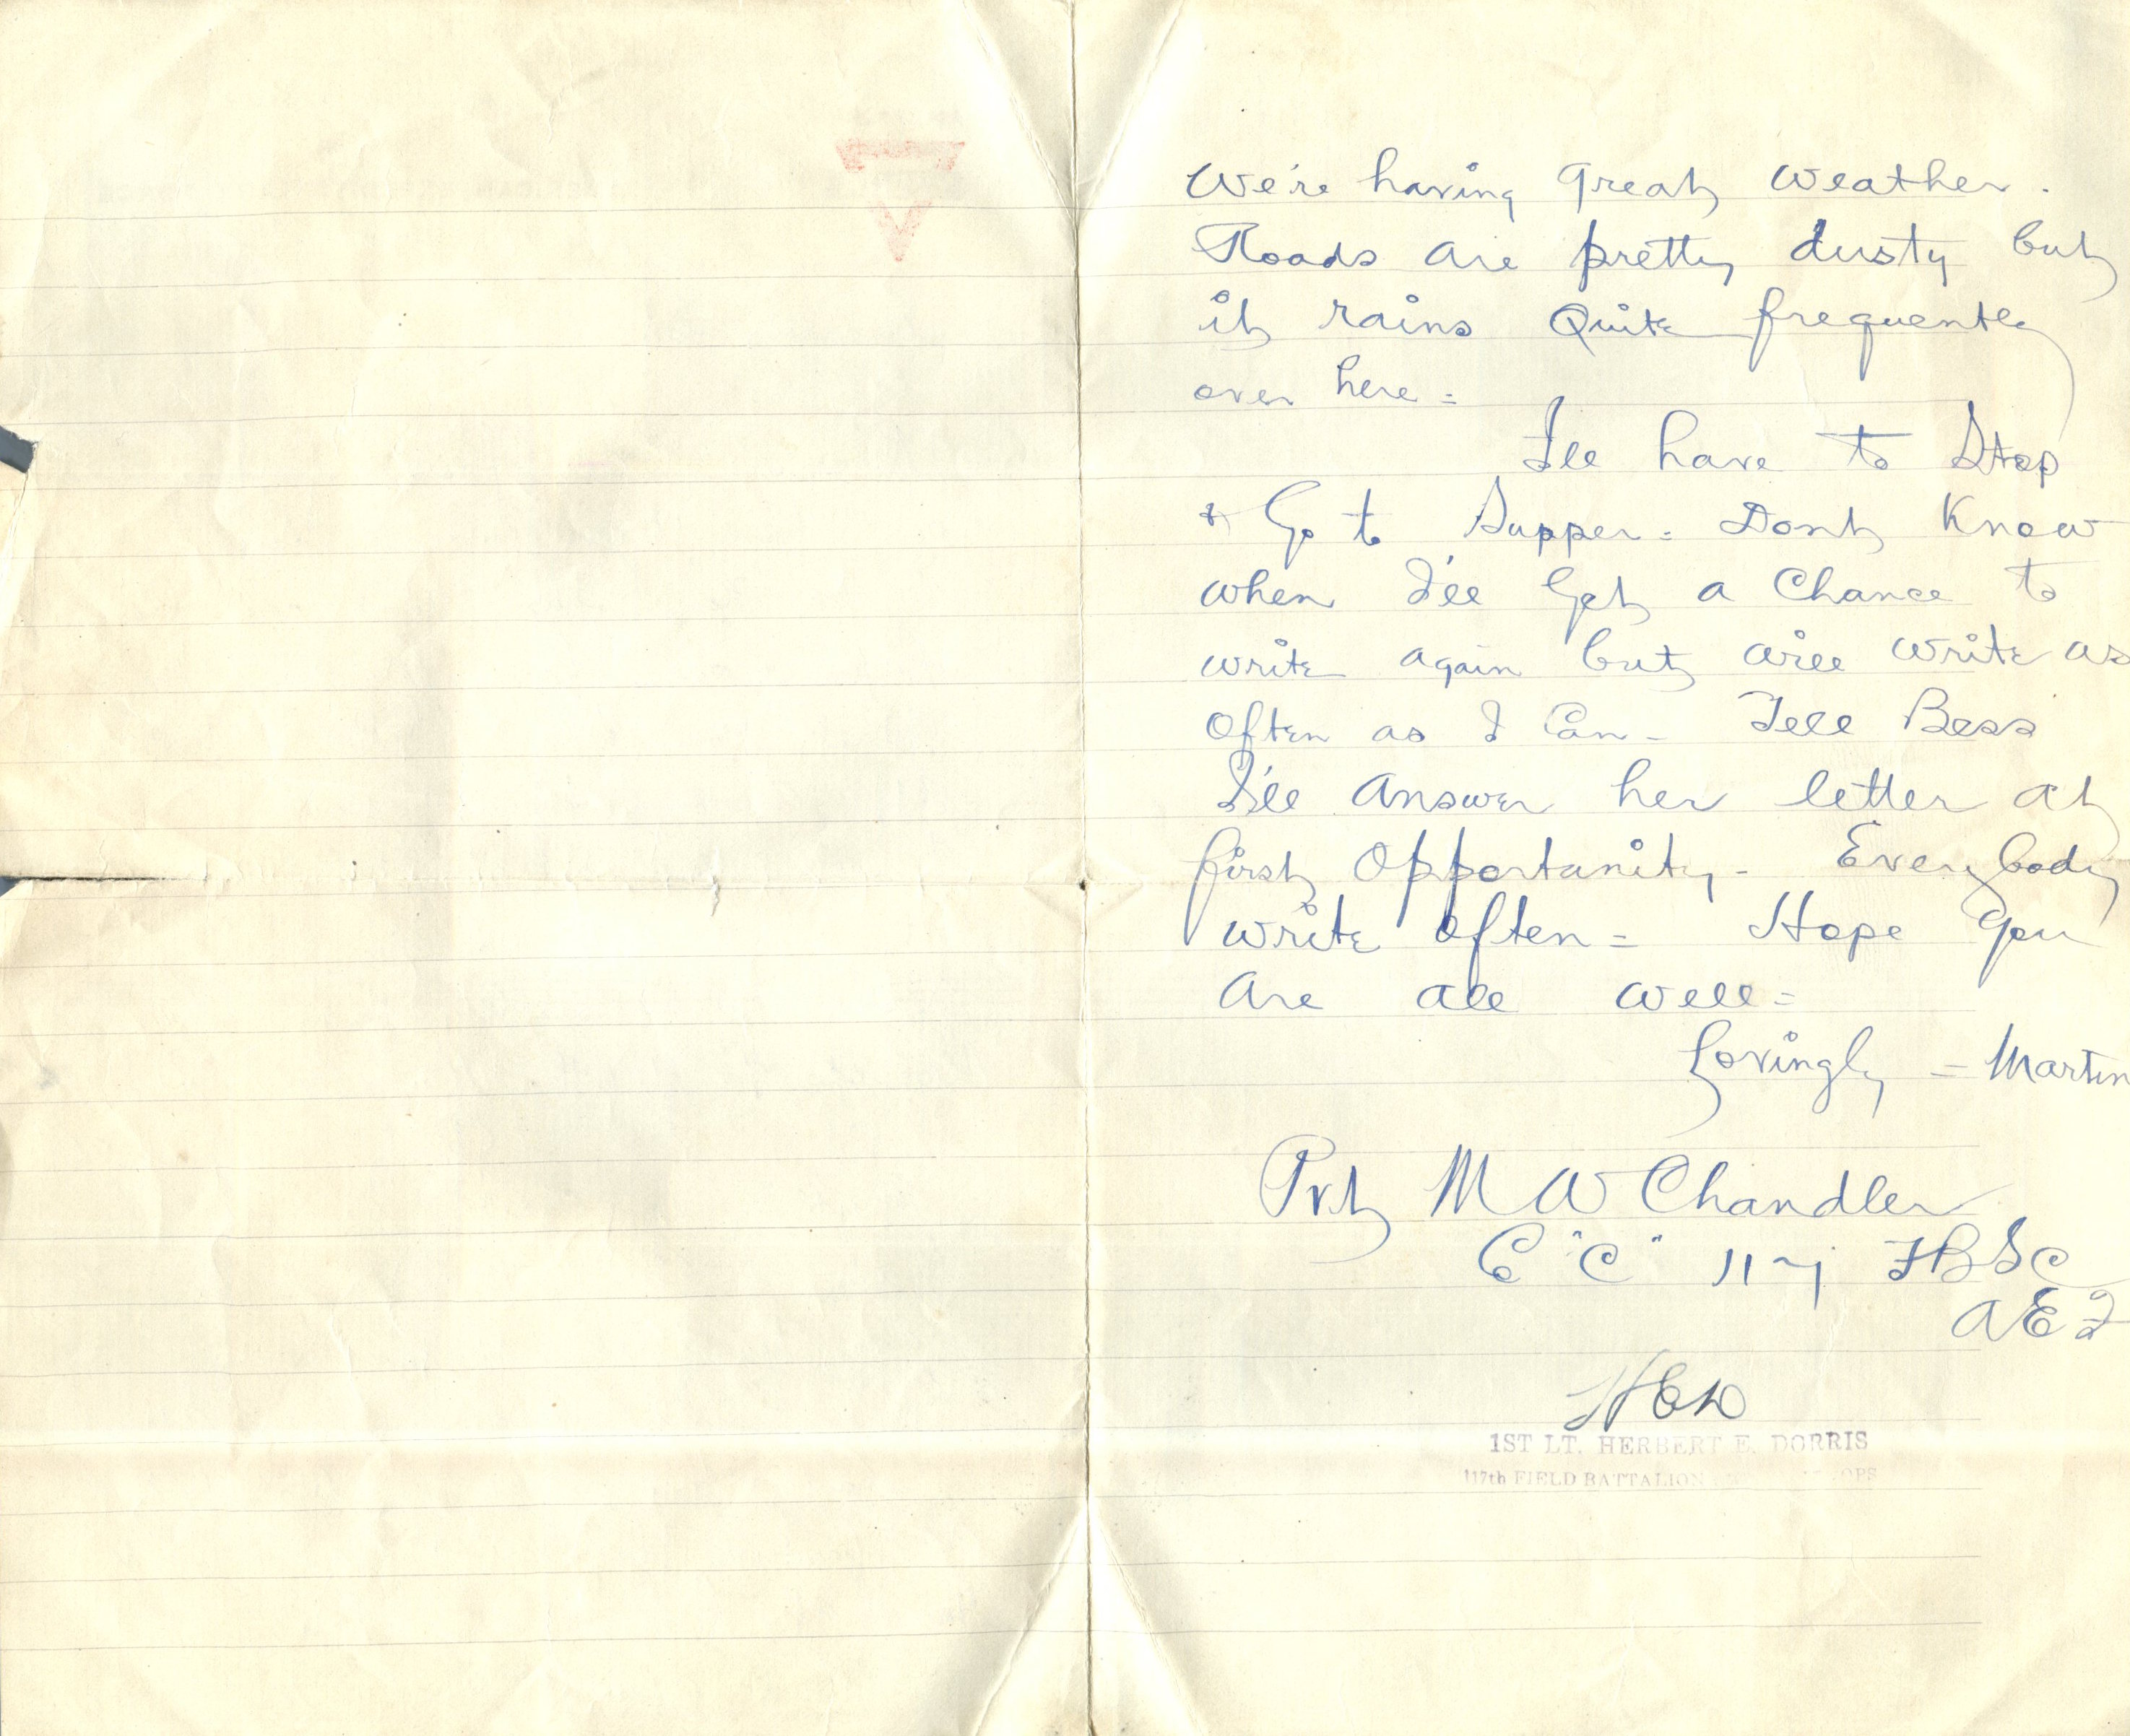 We're having great weather.
Roads are pretty dusty but
it rains Quite frequently
over here =
I'll have to Stop
& Go to Supper = Dont Know
when I'll Get a Chance to
write again but will write as
Often as I Can - Tell Bess
I'll Answer her letter at
first Opportunity - Everybody
write Often = Hope you
Are all well =
Lovingly = Martin
Pvt M W Chandler
Co "C" 117 FBSC
AEF
HED
1ST LT. HERBERT E. DORRIS
117th FIELD BATTALION